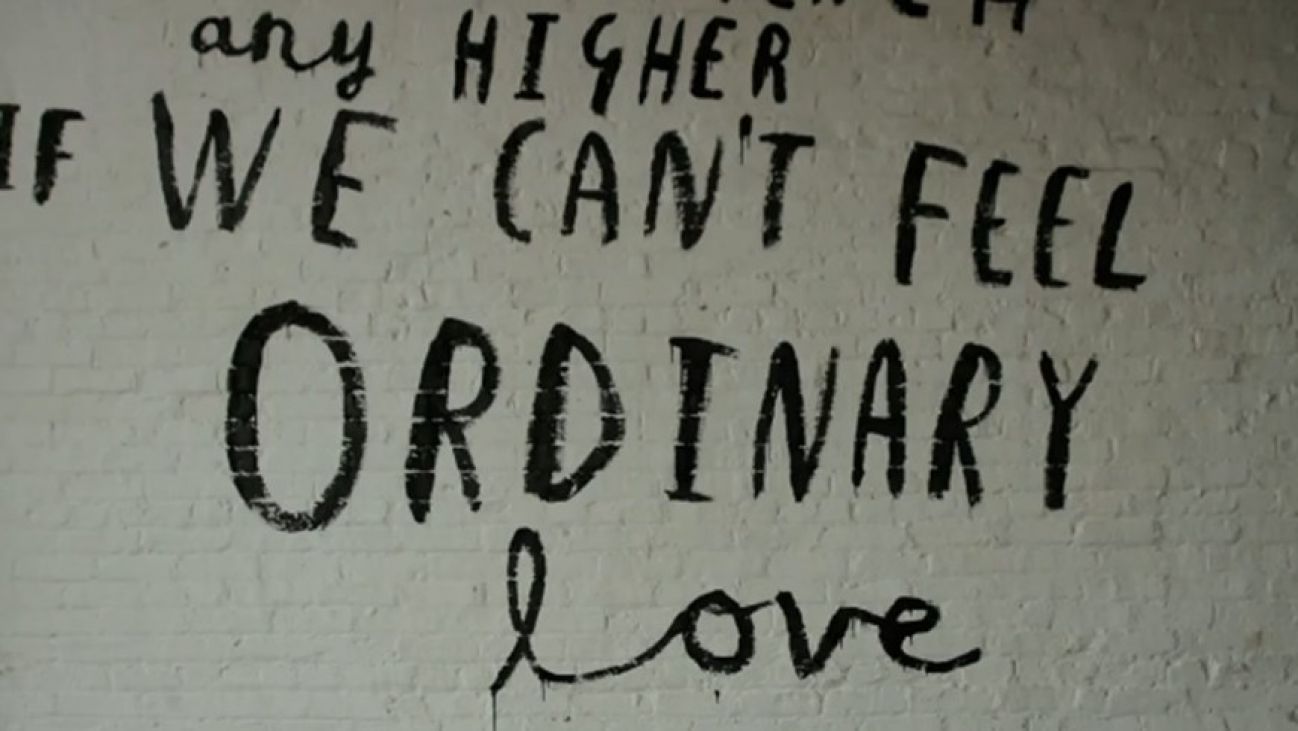 any HIGHER
IF WE CAN'T FEEL
ORDINARY
love